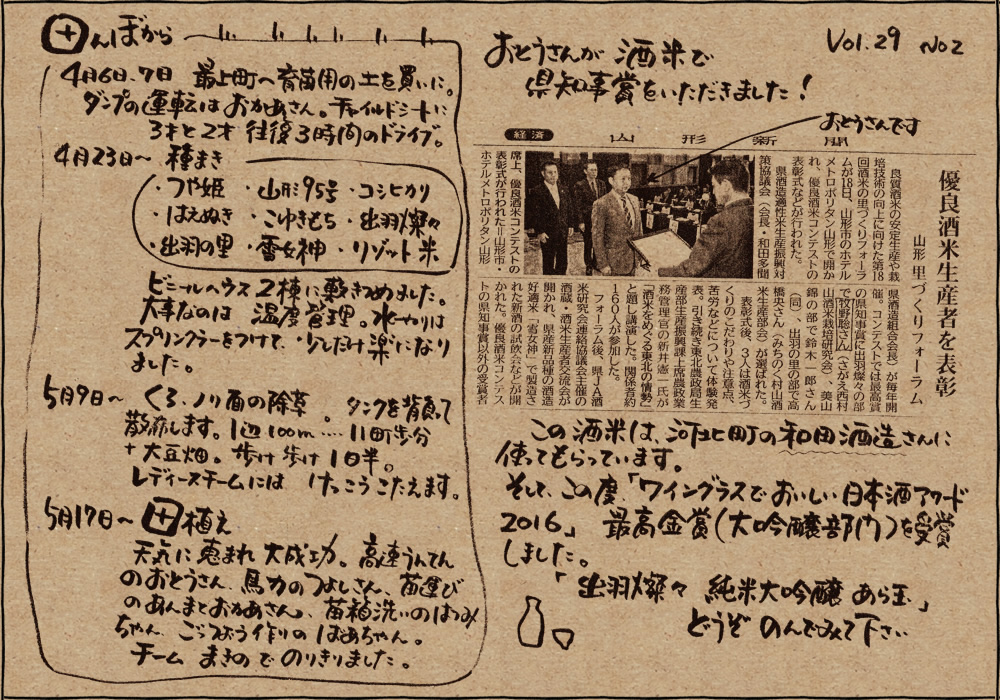 田んぼから
4月6日、7日 最上町へ育苗用の土を買いに。
ダンプの運転はおかあさん。チャイルドシートに
3才と2才 往復3時間のドライブ。
4月23日〜 種まき
・つや姫 ・山形95号 ・コシヒカリ
・はえぬき ・こゆきもち ・出羽燦々
・出羽の里 ・雪女神 ・リゾット米
ビニールハウス2棟に敷きつめました。
大事なのは 温度管理。水やりは
スプリンクラーをつけて、少しだけ楽になり
ました。
5月9日〜 くろ、ノリ面の除草。タンクを背負って
散布します。1辺100m‥‥11町歩分
+大豆畑。歩け歩け1日半。
レディースチームには けっこうこたえます。
5月17日〜 田植え
天気に恵まれ大成功。高速うんてん
のおとうさん、馬力のつよしさん、苗運び
のあんまとおかあさん、苗箱洗いのはつみ
ちゃん、ごっつおう作りのばあちゃん。
チームまきのでのりきりました。
Vol.29 No2
おとうさんが 酒米で
県知事賞をいただきました！
おとうさんです
経済
山形新聞
優良酒米生産者を表彰
山形 里づくりフォーラム
良質酒米の安定生産や栽
培技術の向上に向けた第18
回酒米の里づくりフォーラ
ムが18日、山形市のホテル
メトロポリタン山形で開か
れ、優良酒米コンテストの
表彰式などが行われた。
県酒造適性米生産振興対
策協議会（会長・和田多聞
県酒造組合会長）が毎年開
催。コンテストでは最高賞
の県知事賞に出羽燦々の部
で牧野聡さん（さがえ西村
山酒米栽培研究会）、美山
錦の部で鈴木一郎さん
（同）、出羽の里の部で高
橋央さん（みちのく村山酒
米生産部会）が選ばれた。
表彰式後、3人は酒米づ
くりのこだわりや注意点、
苦労などについて体験発
表。引き続き東北農政局生
産部生産振興課上席農政業
務管理官の新井憲一氏が
「酒米をめぐる東北の情勢」
と題し講演した。関係者約
160人が参加した。
フォーラム後、県JA酒
米研究会連絡協議会主催の
酒蔵、酒米生産者交流会が
開かれ、県産新品種の酒造
好適米「雪女神」で製造さ
れた新酒の試飲会などが開
かれた。優良酒米コンテス
トの県知事賞以外の受賞者
席上、優良酒米コンテストの
表彰式が行われた＝山形市・
ホテルメトロポリタン山形
この酒米は、河北町の和田酒造さんに
使ってもらっています。
そして、この度「ワイングラスでおいしい日本酒アワード
2016」 最高金賞（大吟醸部門）を受賞
しました。
「出羽燦々 純米大吟醸 あら玉」
どうぞ のんでみて下さい